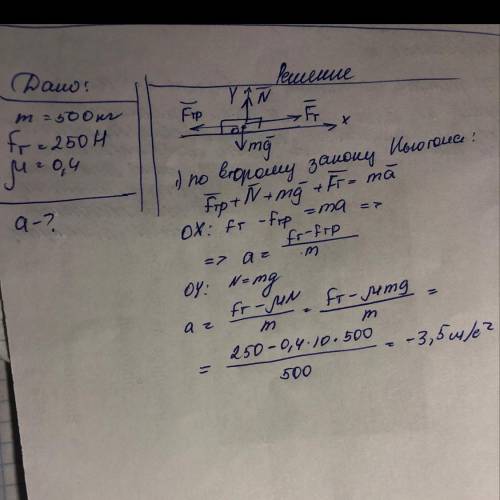 Дано:
m = 500 кг
Fт = 250 Н
μ = 0,4
a - ?
Решение
Y N̅
F̅тр F̅т
0 X
mg̅
1) по второму закону Ньютона:
F̅тр + N̅ + mg̅ + F̅т = ma̅
OX: Fт - Fтр = ma =>
=> a = (Fт - Fтр)/m
OY: N = mg
a = (Fт - μN)/m = (Fт - μmg)/m =
= (250 - 0,4 · 10 · 500)/500 = -3,5 м/с²